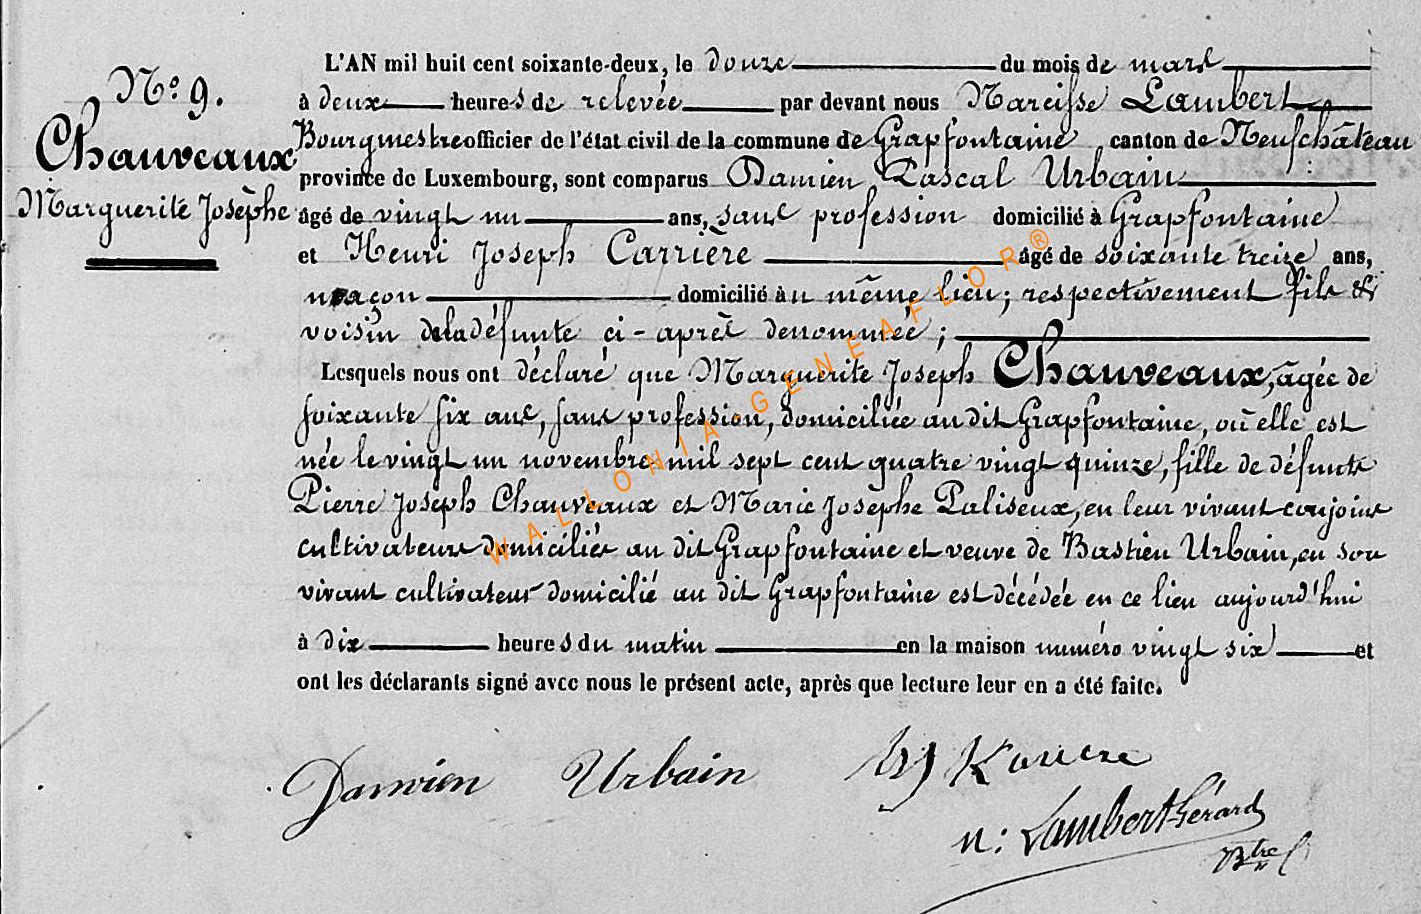 N.º 9.
Chauveaux
Marguerite Josèphe
L'AN mil huit cent soixante-deux, le douze du mois de mars
à deux heures de relevée par devant nous Narcisse Lambert
Bourgmestre officier de l'état civil de la commune de Grapfontaine canton de Neufchâteau
province de Luxembourg, sont comparus Damien Pascal Urbain
âgé de vingt un ans, sans profession domicilié à Grapfontaine
et Henri Joseph Carrière âgé de soixante treize ans,
maçon domicilié à u même lieu; respectivement fils &
voisin de la défunte ci-après denommée;
Lesquels nous ont déclaré que Marguerite Joseph Chauveaux, âgée de
soixante six ans, sans profession, domiciliée au dit Grapfontaine, où elle est
née le vingt un novembre mil sept cent quatre vingt quinze, fille de défunts
Pierre Joseph Chauveaux et Marie Josèphe Paliseux, en leur vivant conjoins
cultivateurs domiciliés au dit Grapfontaine et veuve de Bastien Urbain, en son
vivant cultivateur domicilié au dit Grapfontaine est décédée en ce lieu aujourd'hui
à dix heures du matin en la maison numéro vingt six et
ont les déclarants signé avec nous le présent acte, après que lecture leur en a été faite.
WALLONIA-GENEAFLOR®
Damien Urbain
n: Lambert Gérard
Btre